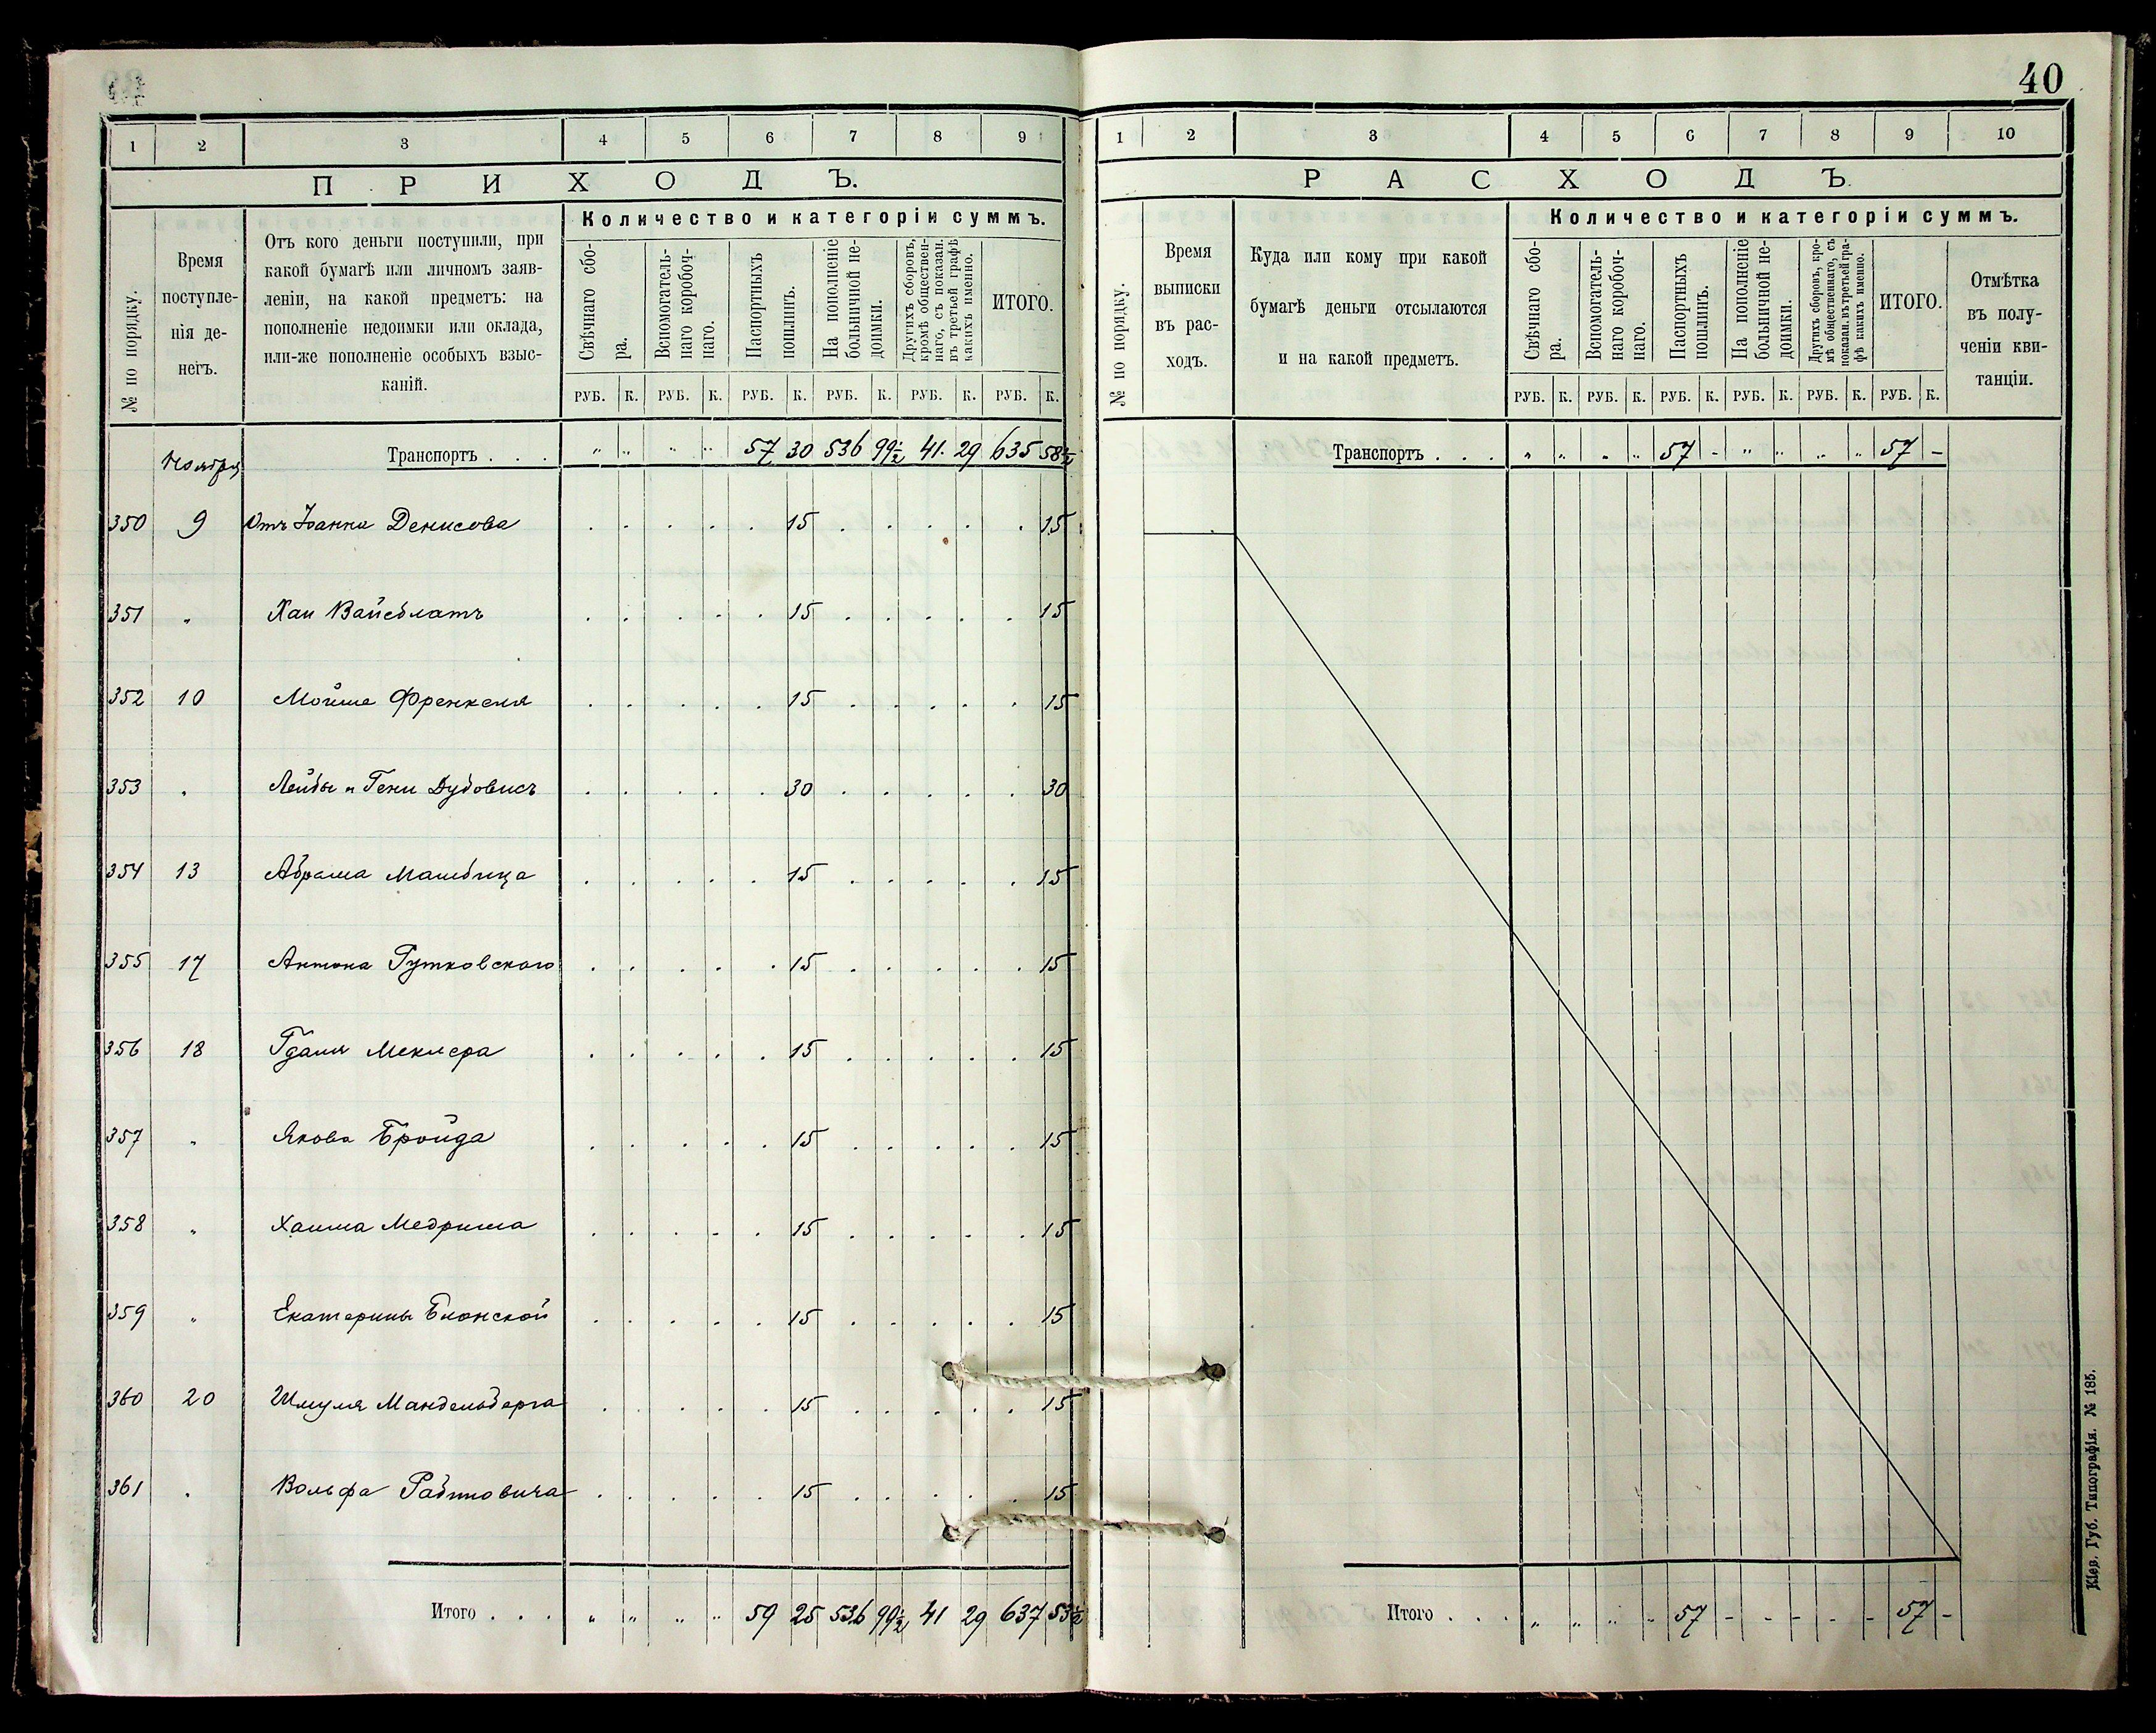 40
1 2 3 4 5 6 7 8 9
ПРИХОДЪ.
№ по порядку.
Время поступле-
нія де-
негъ.
Отъ кого деньги поступили, при
какой бумагѣ или личномъ заяв-
леніи, на какой предметъ: на
пополненіе недоимки или оклада,
или-же пополненіе особыхъ взыс-
каній.
Количество и категоріи суммъ.
Свѣчнаго сбо-
ра.
Вспомогатель-
наго коробоч-
наго.
Паспортныхъ
пошлинъ.
На пополненіе
больничной не-
доимки.
Другихъ сборовъ,
кромѣ обществен-
наго, съ показан.
въ третьей графѣ
какихъ именно.
ИТОГО.
РУБ. К. РУБ. К. РУБ. К. РУБ. К. РУБ. К. РУБ. К.
Ноября Транспортъ . . . „ „ „ „ 57 30 536 99½ 41. 29 635 58½
350 9 Отъ Іоанна Денисова . . . . . . 15 . . . . . 15
351 „ Хаи Вайсблатъ . . . . . 15 . . . . . 15
352 10 Мойше Френкеля . . . . . 15 . . . . . 15
353 „ Лейбы и Гени Дубовисъ . . . . . 30 . . . . . 30
354 13 Абрама Машбица . . . . . 15 . . . . . 15
355 17 Антона Гутковскаго . . . . . 15 . . . . . 15
356 18 Гдаля Меклера . . . . . 15 . . . . . 15
357 „ Якова Бройда . . . . . 15 . . . . . 15
358 „ Хаима Медриша . . . . . 15 . . . . . 15
359 „ Екатерины Блонской . . . . . 15 . . . . . 15
360 20 Шмуля Мандельберга . . . . . 15 . . . . . 15
361 „ Вольфа Рабиновича . . . . . 15 . . . . . 15
Итого . . . „ „ „ „ 59 25 536 99½ 41 29 637 53½
1 2 3 4 5 6 7 8 9 10
РАСХОДЪ.
№ по порядку.
Время
выписки
въ рас-
ходъ.
Куда или кому при какой
бумагѣ деньги отсылаются
и на какой предметъ.
Количество и категоріи суммъ.
Свѣчнаго сбо-
ра.
Вспомогатель-
наго коробоч-
наго.
Паспортныхъ
пошлинъ.
На пополненіе
больничной не-
доимки.
Другихъ сборовъ, кро-
мѣ общественнаго, съ
показан. въ третьей гра-
фѣ какихъ именно.
ИТОГО.
Отмѣтка
въ полу-
ченіи кви-
танціи.
РУБ. К. РУБ. К. РУБ. К. РУБ. К. РУБ. К. РУБ. К.
Транспортъ . . . „ „ „ „ 57 - „ „ „ „ 57 -
Итого . . . „ „ „ - 57 - - - - - 57 -
Кіев. Губ. Типографія. № 185.